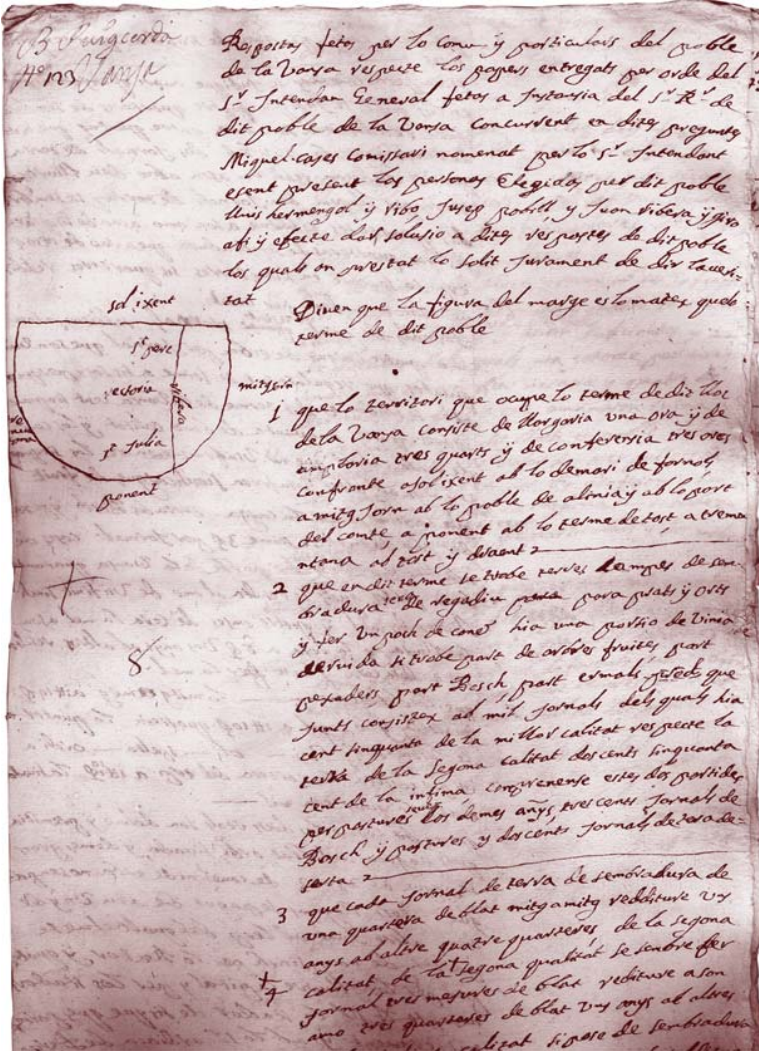 B Puigcerda
N.º 123 Vansa
Respostas fetas per lo comu y particulars del poble
de la Vansa respecte los papers entregats per orde del
S.r Intendan General fetas a Instansia del S.r R.r de
dit poble de la Vansa concurrent en dites preguntes
Miquel cases comissari nomenat per lo S.r Intendent
esent present las personas Elegidas per dit poble
lluis hermengol y ribo, Jusep pobill, y Juan ribera y giro
afi y efecte dar solusio a dites respostes de dit poble
los quals on prestat lo solit Jurament de dir la veri-
tat
Diuen que la figura del marge es lo matex que lo
terme de dit poble
sol ixent
S.t pere
rectoria
ribera
S.t Julia
mitgjorn
ponent
1 que lo territori que ocupe lo terme de dit lloc
de la Vansa consiste de llargaria una ora y de
amplaria tres quarts y de conferensia tres ores
confronte a sol ixent ab lo demari de fornols
a mitg Jorn ab lo poble de alinia y ab lo port
del comte, a ponent ab lo terme de tost, a tremu
ntana ab tost y
2 que en dit terme se trobe terres campes de sem-
bradura de regadiu para prats y orts
y fer un poch de canem hia una portio de vinia
se trobe part de arbres fruites, part
part Bosch, part ermals, que
Junts consistex ab mil Jornals dels quals hia
cent sinquanta de la millor calitat respecte la
terra de la segona calitat doscents sinquanta
cent de la infima comprenense estes dos partides
per pastures los demes añys, tres cents Jornals de
Bosch y pastures y doscents Jornals de tera de-
serta
3 que cada Jornal de terra de sembradura de
una quartera de blat mitg a mitg redditure uns
anys ab altre quatre quarteres de la segona
4 calitat de la segona qualitat se sembre per
Jornal tres mesures de blat rediture a son
amo tres quarteres de blat uns anys ab altres
calitat si pose de sembradura
8